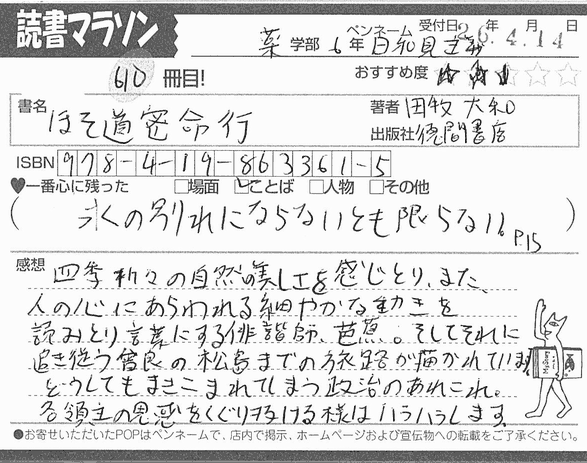 読書マラソン
薬 学部 6年 ペンネーム 日和見
受付日 26年 4月 14日
610 冊目! おすすめ度
書名 ほそ道密命行 著者 田牧 大和
出版社 徳間書店
ISBN 978-4-19-863361-5
♥一番心に残った □場面 ☑ことば □人物 □その他
(永の別れにならないとも限らない。P.15)
感想 四季折々の自然の美しさを感じとり、また、
人の心にあらわれる細やかな動きを
読みとり言葉にする俳諧師、芭蕉。そしてそれに
追き従う曾良の松島までの旅路が描かれています。
どうしてもまきこまれてしまう政治のあれこれ。
各領主の思惑をくぐりぬける様はハラハラします
●お寄せいただいたPOPはペンネームで、店内で掲示、ホームページおよび宣伝物への転載をご了承ください。